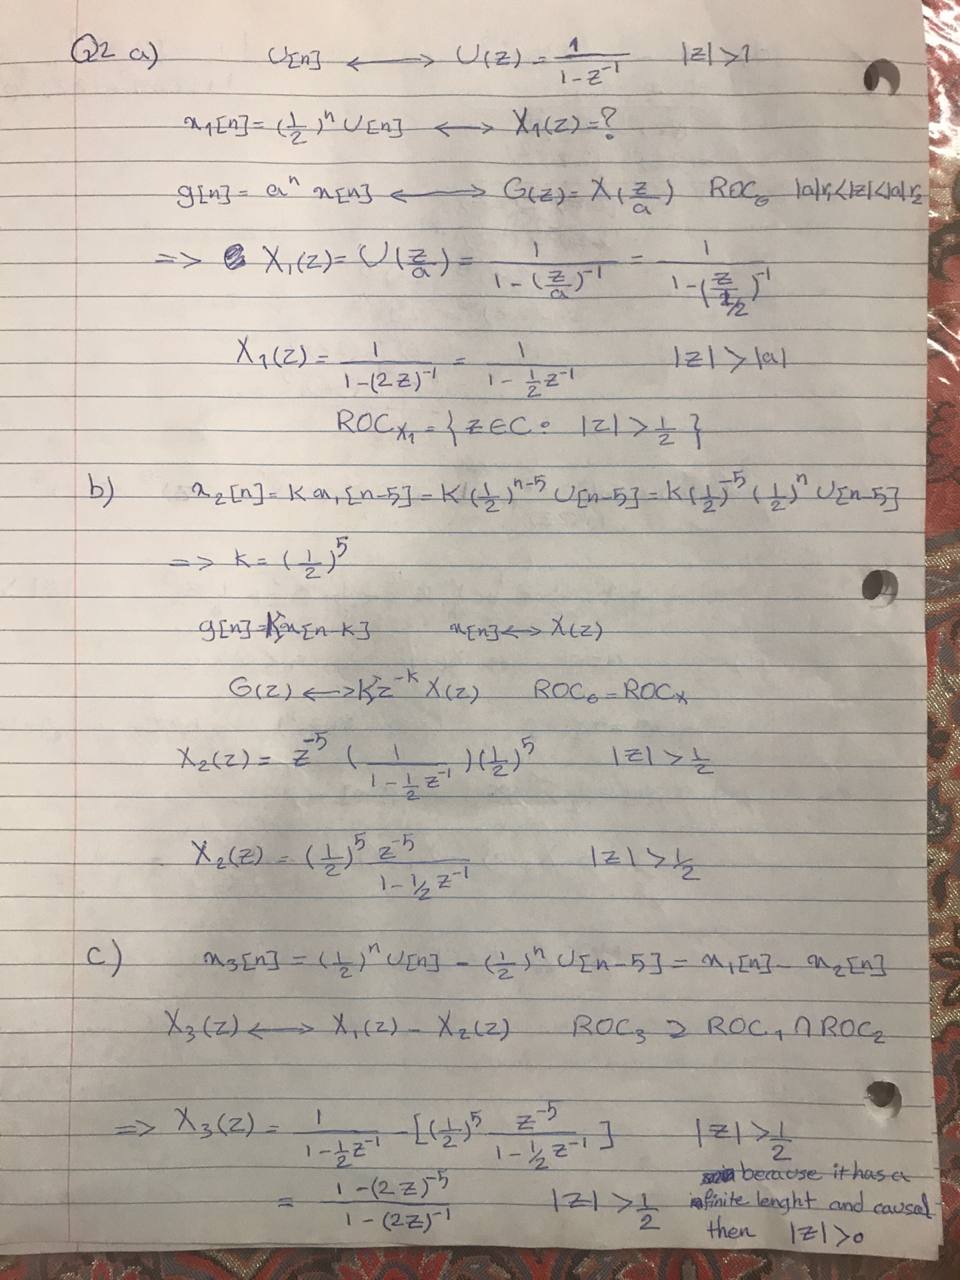 Q2 a) U[n] ⟷ U(z) = 1/(1-z^-1) |z|>1
x1[n] = (1/2)^n U[n] ⟷ X1(z)=?
g[n] = a^n x[n] ⟷ G(z)= X(z/a) ROC_G |a|r1<|z|<|a|r2
=> X1(z)= U(z/a) = 1/(1-(z/a)^-1) = 1/(1-(z/(1/2))^-1)
X1(z) = 1/(1-(2z)^-1) = 1/(1-1/2 z^-1) |z|>|a|
ROC_X1 = {z∈C: |z|>1/2}
b) x2[n]= K x1[n-5] = K(1/2)^(n-5) U[n-5] = K(1/2)^-5 (1/2)^n U[n-5]
=> K = (1/2)^5
g[n]= x[n-k] x[n]⟷X(z)
G(z) ⟷ z^-k X(z) ROC_G = ROC_X
X2(z) = z^-5 (1/(1-1/2 z^-1))(1/2)^5 |z|>1/2
X2(z) = (1/2)^5 z^-5/(1-1/2 z^-1) |z|>1/2
c) x3[n] = (1/2)^n U[n] - (1/2)^n U[n-5] = x1[n] - x2[n]
X3(z) ⟷ X1(z) - X2(z) ROC3 ⊃ ROC1 ∩ ROC2
=> X3(z) = 1/(1-1/2 z^-1) - [(1/2)^5 z^-5/(1-1/2 z^-1)] |z|>1/2
= (1-(2z)^-5)/(1-(2z)^-1) |z|>1/2
because it has a
finite lenght and causal
then |z|>0